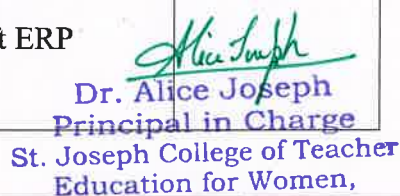 t ERP
Alice Joseph
Dr. Alice Joseph
Principal in Charge
St. Joseph College of Teacher
Education for Women,